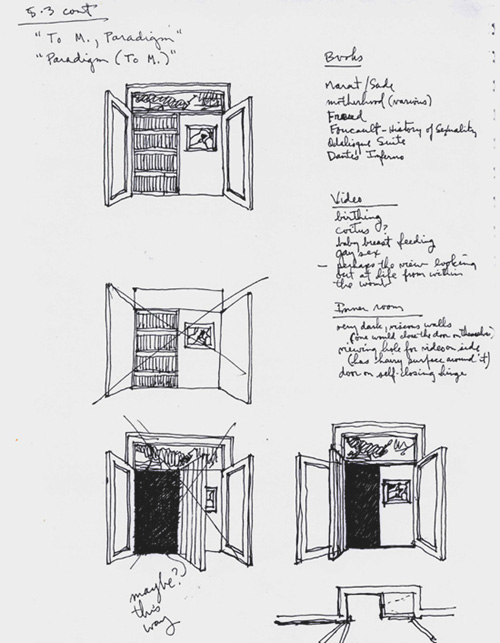 5.3 cont
"To M., Paradigm"
"Paradigm (To M.)"
Books
Marat/Sade
motherhood (various)
Freud
Foucault - History of Sexuality
Odalisque Suite
Dante's Inferno
Video
birthing
coitus?
baby breast feeding
gay sex
- perhaps the view looking
out at life from within
the womb
Inner room
very dark, viscous walls
(one would close the door on themselves)
viewing hole for video on side
(has hairy surface around it)
door on self-closing hinge
maybe?
this
way